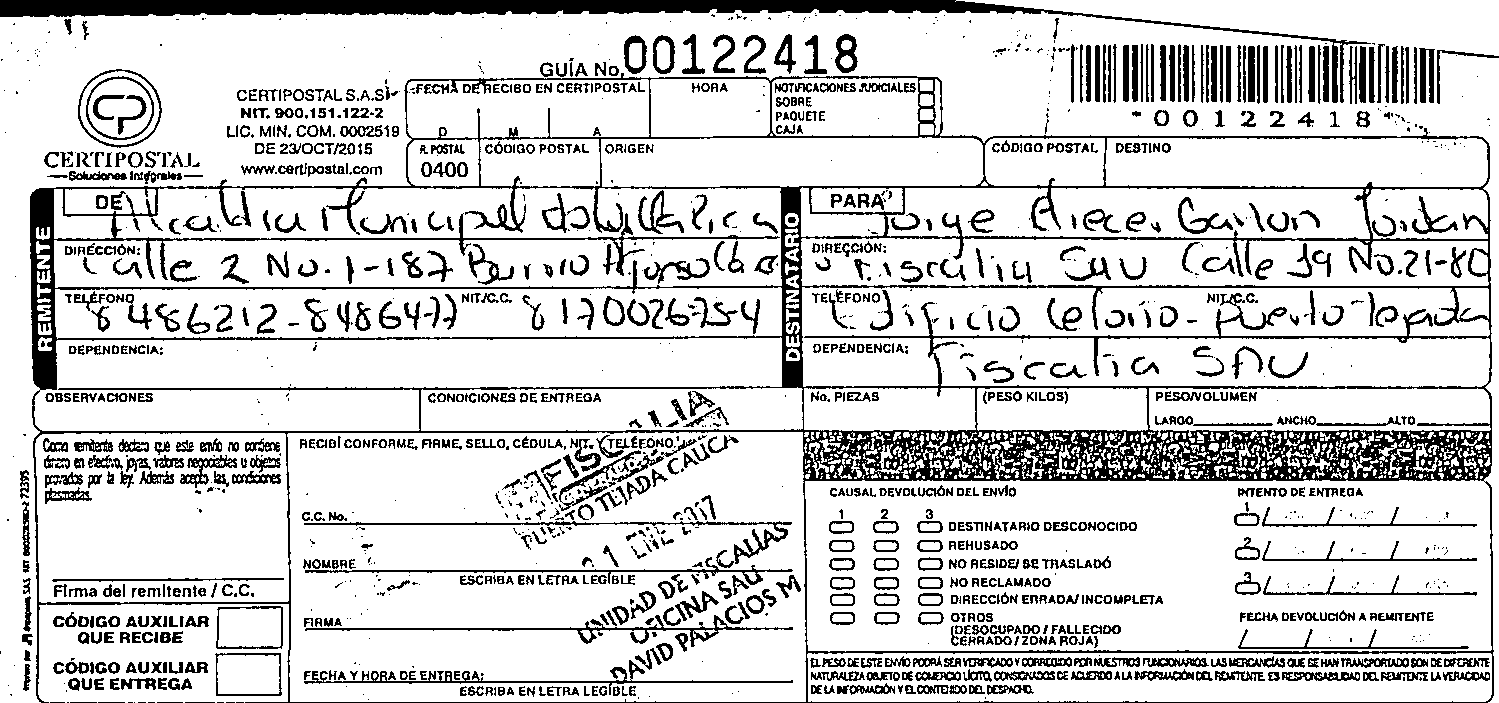 GUÍA No. 00122418
CERTIPOSTAL
Soluciones Integrales
CERTIPOSTAL S.A.S
NIT. 900.151.122-2
LIC. MIN. COM. 0002519
DE 23/OCT/2015
www.certipostal.com
FECHA DE RECIBO EN CERTIPOSTAL
D M A
HORA
NOTIFICACIONES JUDICIALES
SOBRE
PAQUETE
CAJA
*00122418*
R. POSTAL
0400
CÓDIGO POSTAL
ORIGEN
CÓDIGO POSTAL
DESTINO
REMITENTE
DE Alcaldia Municipal de Villa Rica
DIRECCIÓN: Calle 2 No. 1-187 Barrio
TELÉFONO 8486212-8486477 NIT/C.C. 817002675-4
DEPENDENCIA:
DESTINATARIO
PARA Jorge Eliecer Jordan
DIRECCIÓN: Fiscalia SAU Calle 19 No.21-80
TELÉFONO NIT/C.C.
Edificio - Puerto Tejada
DEPENDENCIA: Fiscalia SAU
OBSERVACIONES
CONDICIONES DE ENTREGA
No. PIEZAS
(PESO KILOS)
PESO/VOLUMEN
LARGO ANCHO ALTO
Como remitente declaro que este envío no contiene
dinero en efectivo, joyas, valores negociables u objetos
por la ley. Además acepto las condiciones
plasmadas.
Firma del remitente / C.C.
CÓDIGO AUXILIAR
QUE RECIBE
CÓDIGO AUXILIAR
QUE ENTREGA
RECIBÍ CONFORME, FIRME, SELLO, CÉDULA, NIT. Y TELÉFONO
C.C. No.
NOMBRE
ESCRIBA EN LETRA LEGIBLE
FIRMA
FECHA Y HORA DE ENTREGA:
ESCRIBA EN LETRA LEGIBLE
FISCALIA
PUERTO TEJADA CAUCA
ENE 2017
UNIDAD DE FISCALÍAS
OFICINA SAU
DAVID PALACIOS M
CAUSAL DEVOLUCIÓN DEL ENVÍO
1 2 3
DESTINATARIO DESCONOCIDO
REHUSADO
NO RESIDE/ SE TRASLADÓ
NO RECLAMADO
DIRECCIÓN ERRADA/ INCOMPLETA
OTROS
(DESOCUPADO / FALLECIDO
CERRADO / ZONA ROJA)
INTENTO DE ENTREGA
1
2
3
FECHA DEVOLUCIÓN A REMITENTE
EL PESO DE ESTE ENVÍO PODRÁ SER VERIFICADO Y CORREGIDO POR NUESTROS FUNCIONARIOS. LAS MERCANCÍAS QUE SE HAN TRANSPORTADO SON DE DIFERENTE
NATURALEZA OBJETO DE COMERCIO LÍCITO, CONSIGNADOS DE ACUERDO A LA INFORMACIÓN DEL REMITENTE. ES RESPONSABILIDAD DEL REMITENTE LA VERACIDAD
DE LA INFORMACIÓN Y EL CONTENIDO DEL DESPACHO.